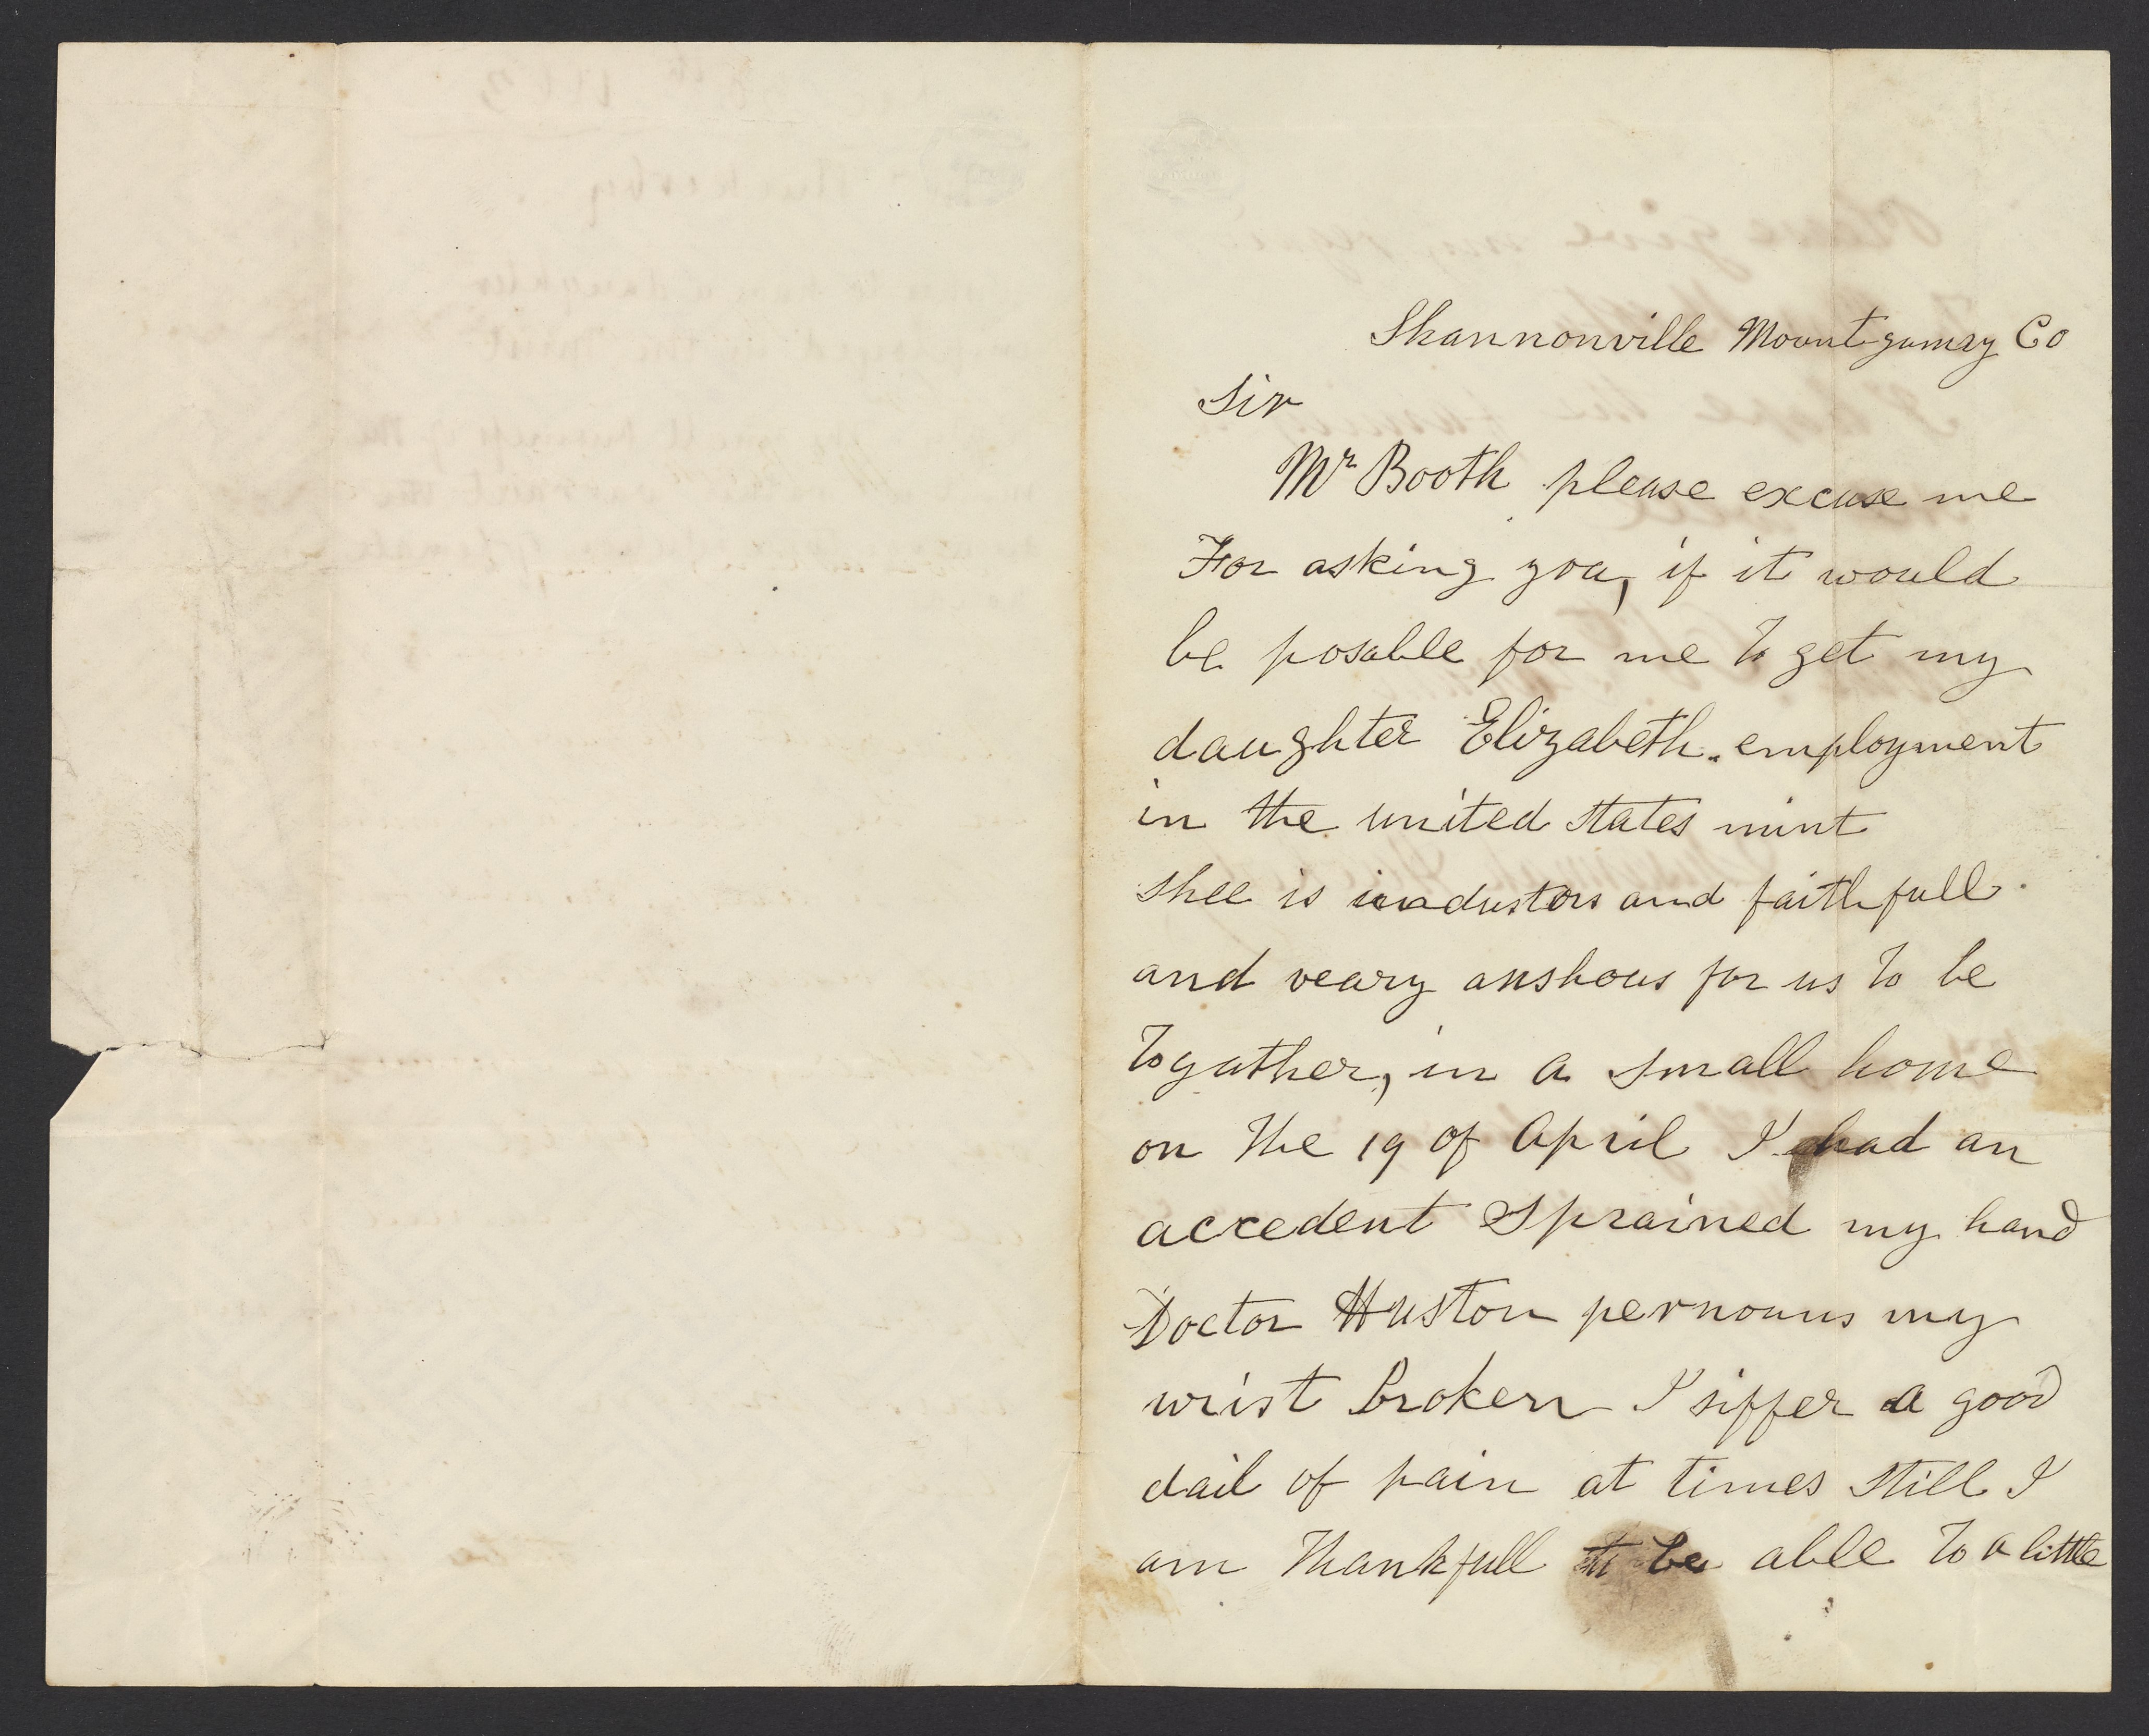 Shannonville Mountgumry Co
Sir
Mr Booth please excuse me
For asking you, if it would
be posable for me to get my
daughter Elizabeth. employment
in the united states mint
shee is industors and faithfull.
and veary anshous for us to be
togather, in a small home
on the 19 of April I had an
accedent Sprained my hand
Doctor Huston pernouns my
wrist broken I siffer a good
dail of pain at times still I
am thankfull to be able to a little